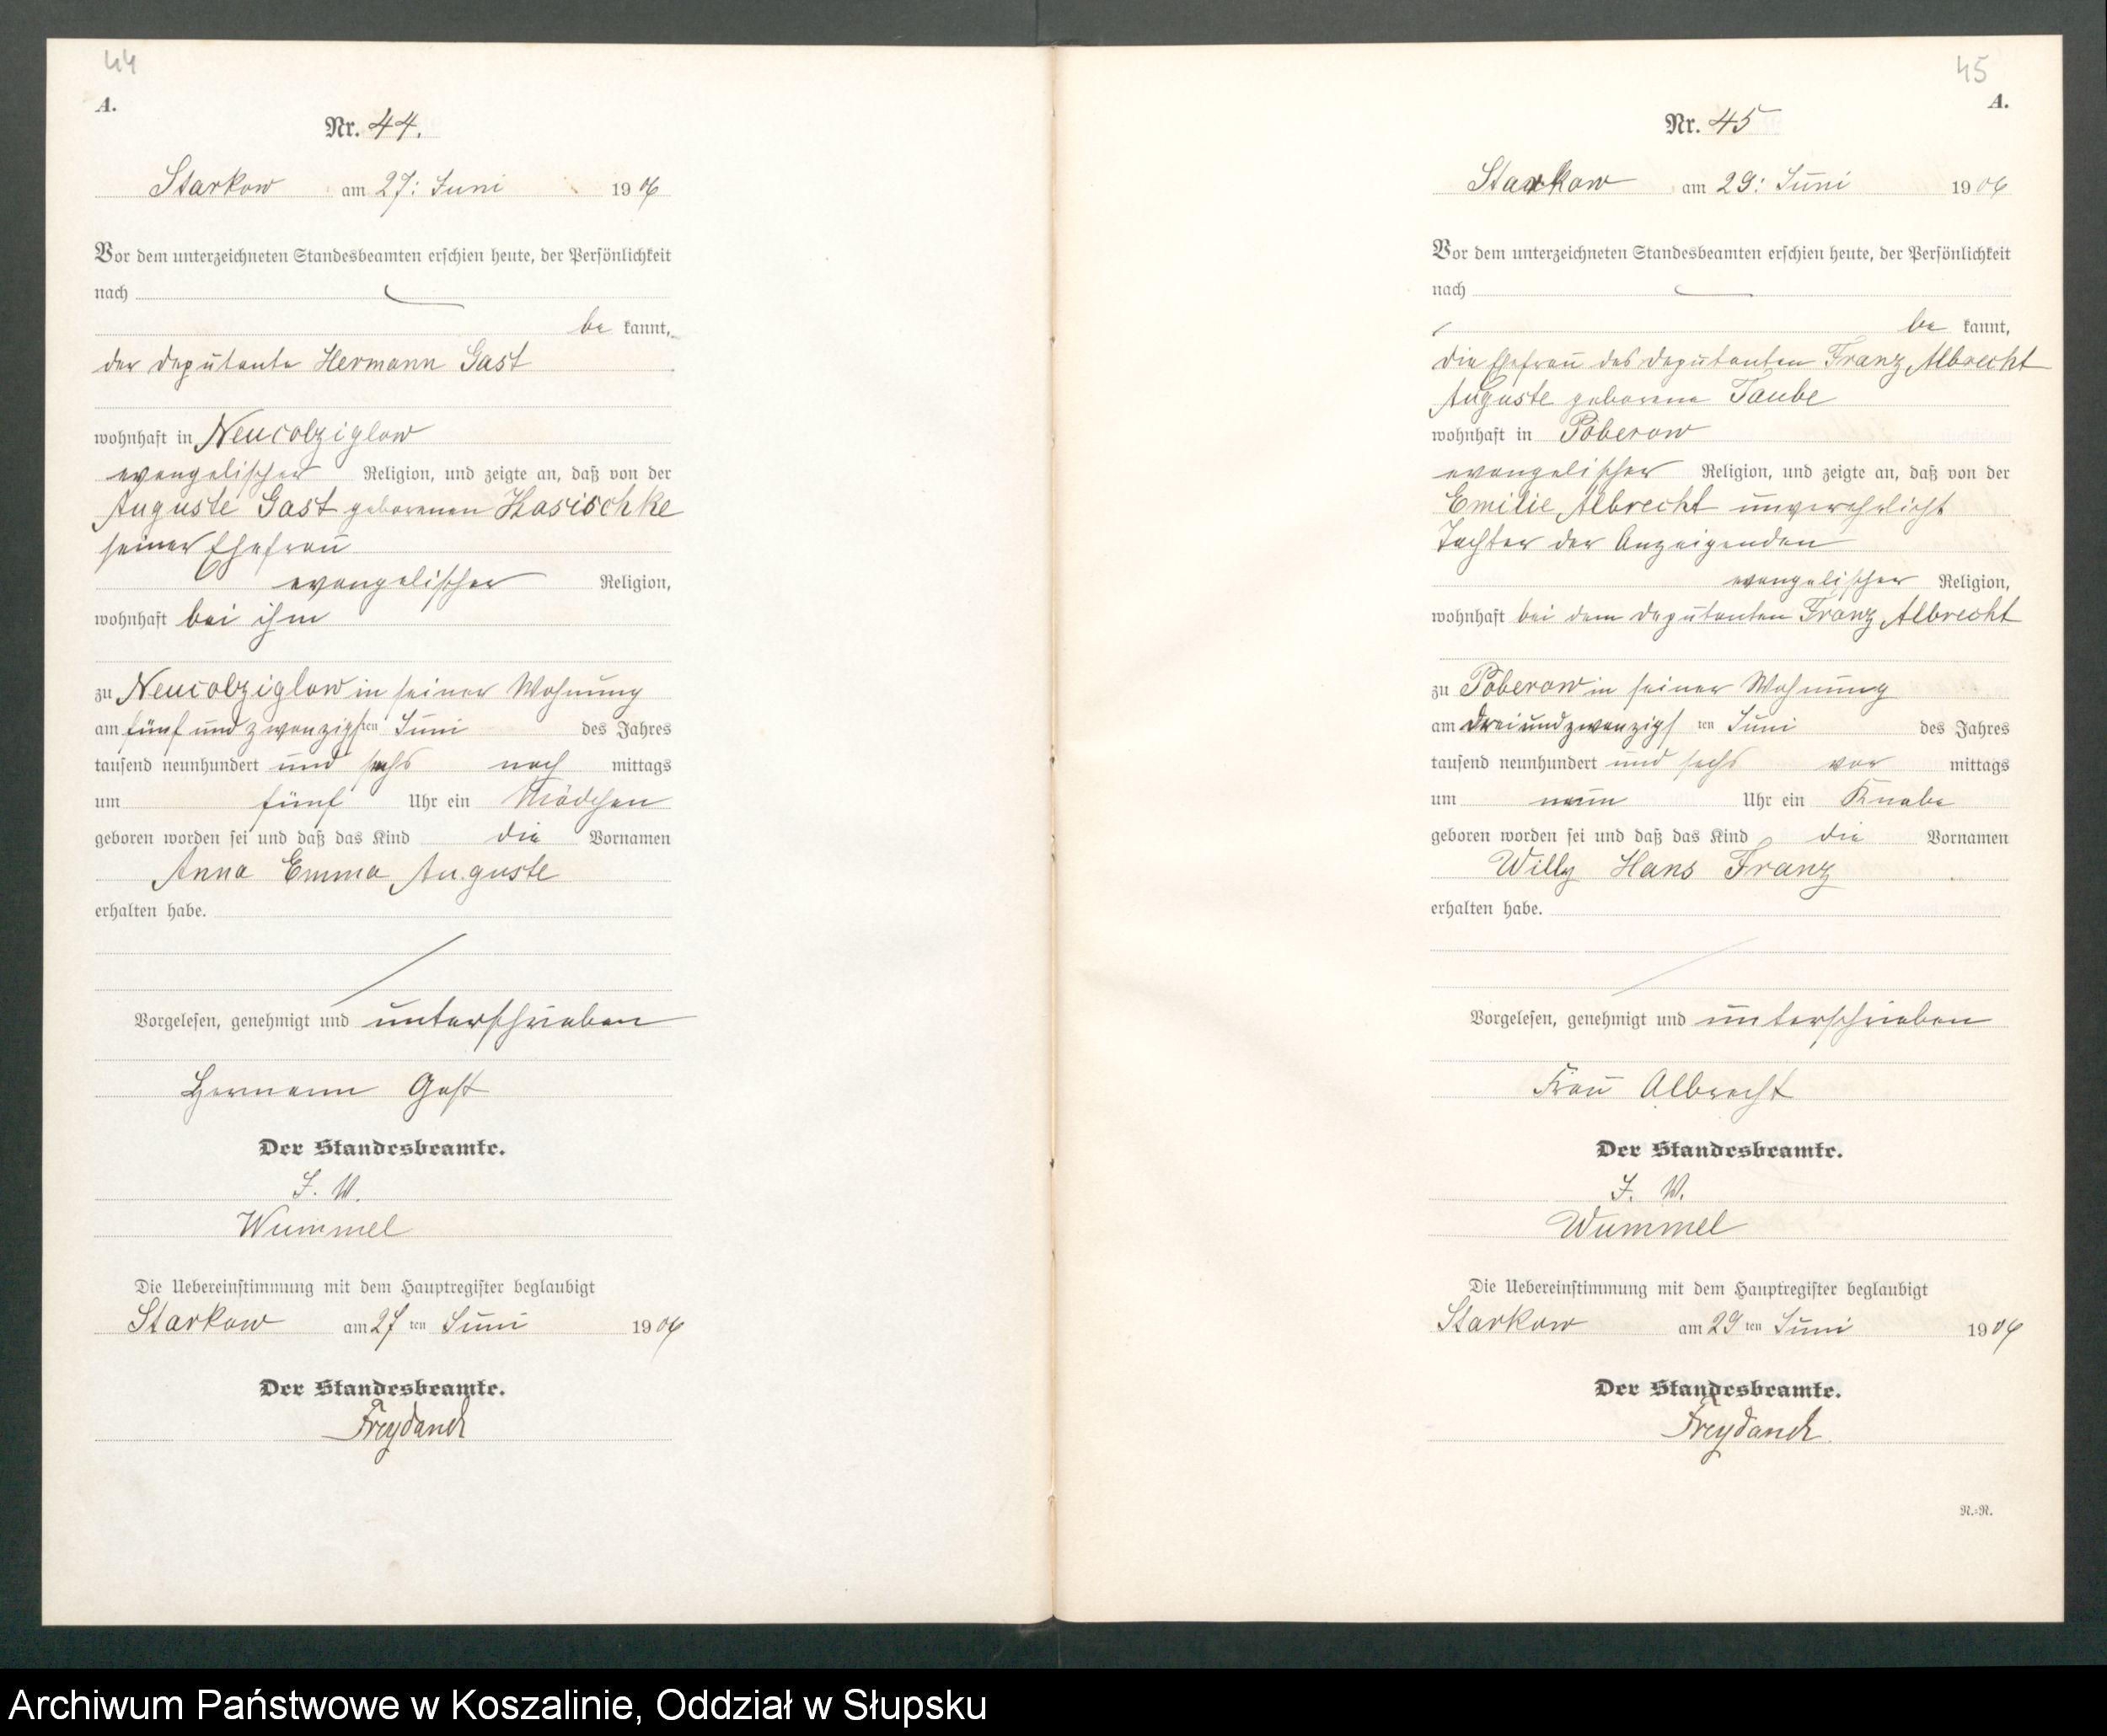 44
A.
Nr. 44.
Starkow am 27: Juni 1906
Vor dem unterzeichneten Standesbeamten erschien heute, der Persönlichkeit
nach
be kannt,
der Deputante Hermann Gast
wohnhaft in Neucolziglow
evangelischer Religion, und zeigte an, daß von der
Auguste Gast geborenen Kasischke
seiner Ehefrau
evangelischer Religion,
wohnhaft bei ihm
zu Neucolziglow in seiner Wohnung
am fünf und zwanzigsten Juni des Jahres
tausend neunhundert und sechs nach mittags
um fünf Uhr ein Mädchen
geboren worden sei und daß das Kind die Vornamen
Anna Emma Auguste
erhalten habe.
Vorgelesen, genehmigt und unterschrieben
Hermann Gast
Der Standesbeamte.
J. V.
Wummel
Die Uebereinstimmung mit dem Hauptregister beglaubigt
Starkow am 27 ten Juni 1906
Der Standesbeamte.
Freydanck
45
A.
Nr. 45
Starkow am 29: Juni 1906
Vor dem unterzeichneten Standesbeamten erschien heute, der Persönlichkeit
nach
be kannt,
die Ehefrau des Deputanten Franz Albrecht
Auguste geborene Taube
wohnhaft in Poberow
evangelischer Religion, und zeigte an, daß von der
Emilie Albrecht unverehelicht
Tochter der Anzeigenden
evangelischer Religion,
wohnhaft bei dem Deputanten Franz Albrecht
zu Poberow in seiner Wohnung
am dreiundzwanzigs ten Juni des Jahres
tausend neunhundert und sechs vor mittags
um neun Uhr ein Knabe
geboren worden sei und daß das Kind die Vornamen
Willy Hans Franz
erhalten habe.
Vorgelesen, genehmigt und unterschrieben
Frau Albrecht
Der Standesbeamte.
J. V.
Wummel
Die Uebereinstimmung mit dem Hauptregister beglaubigt
Starkow am 29 ten Juni 1906
Der Standesbeamte.
Freydanck.
R.=R.
Archiwum Państwowe w Koszalinie, Oddział w Słupsku